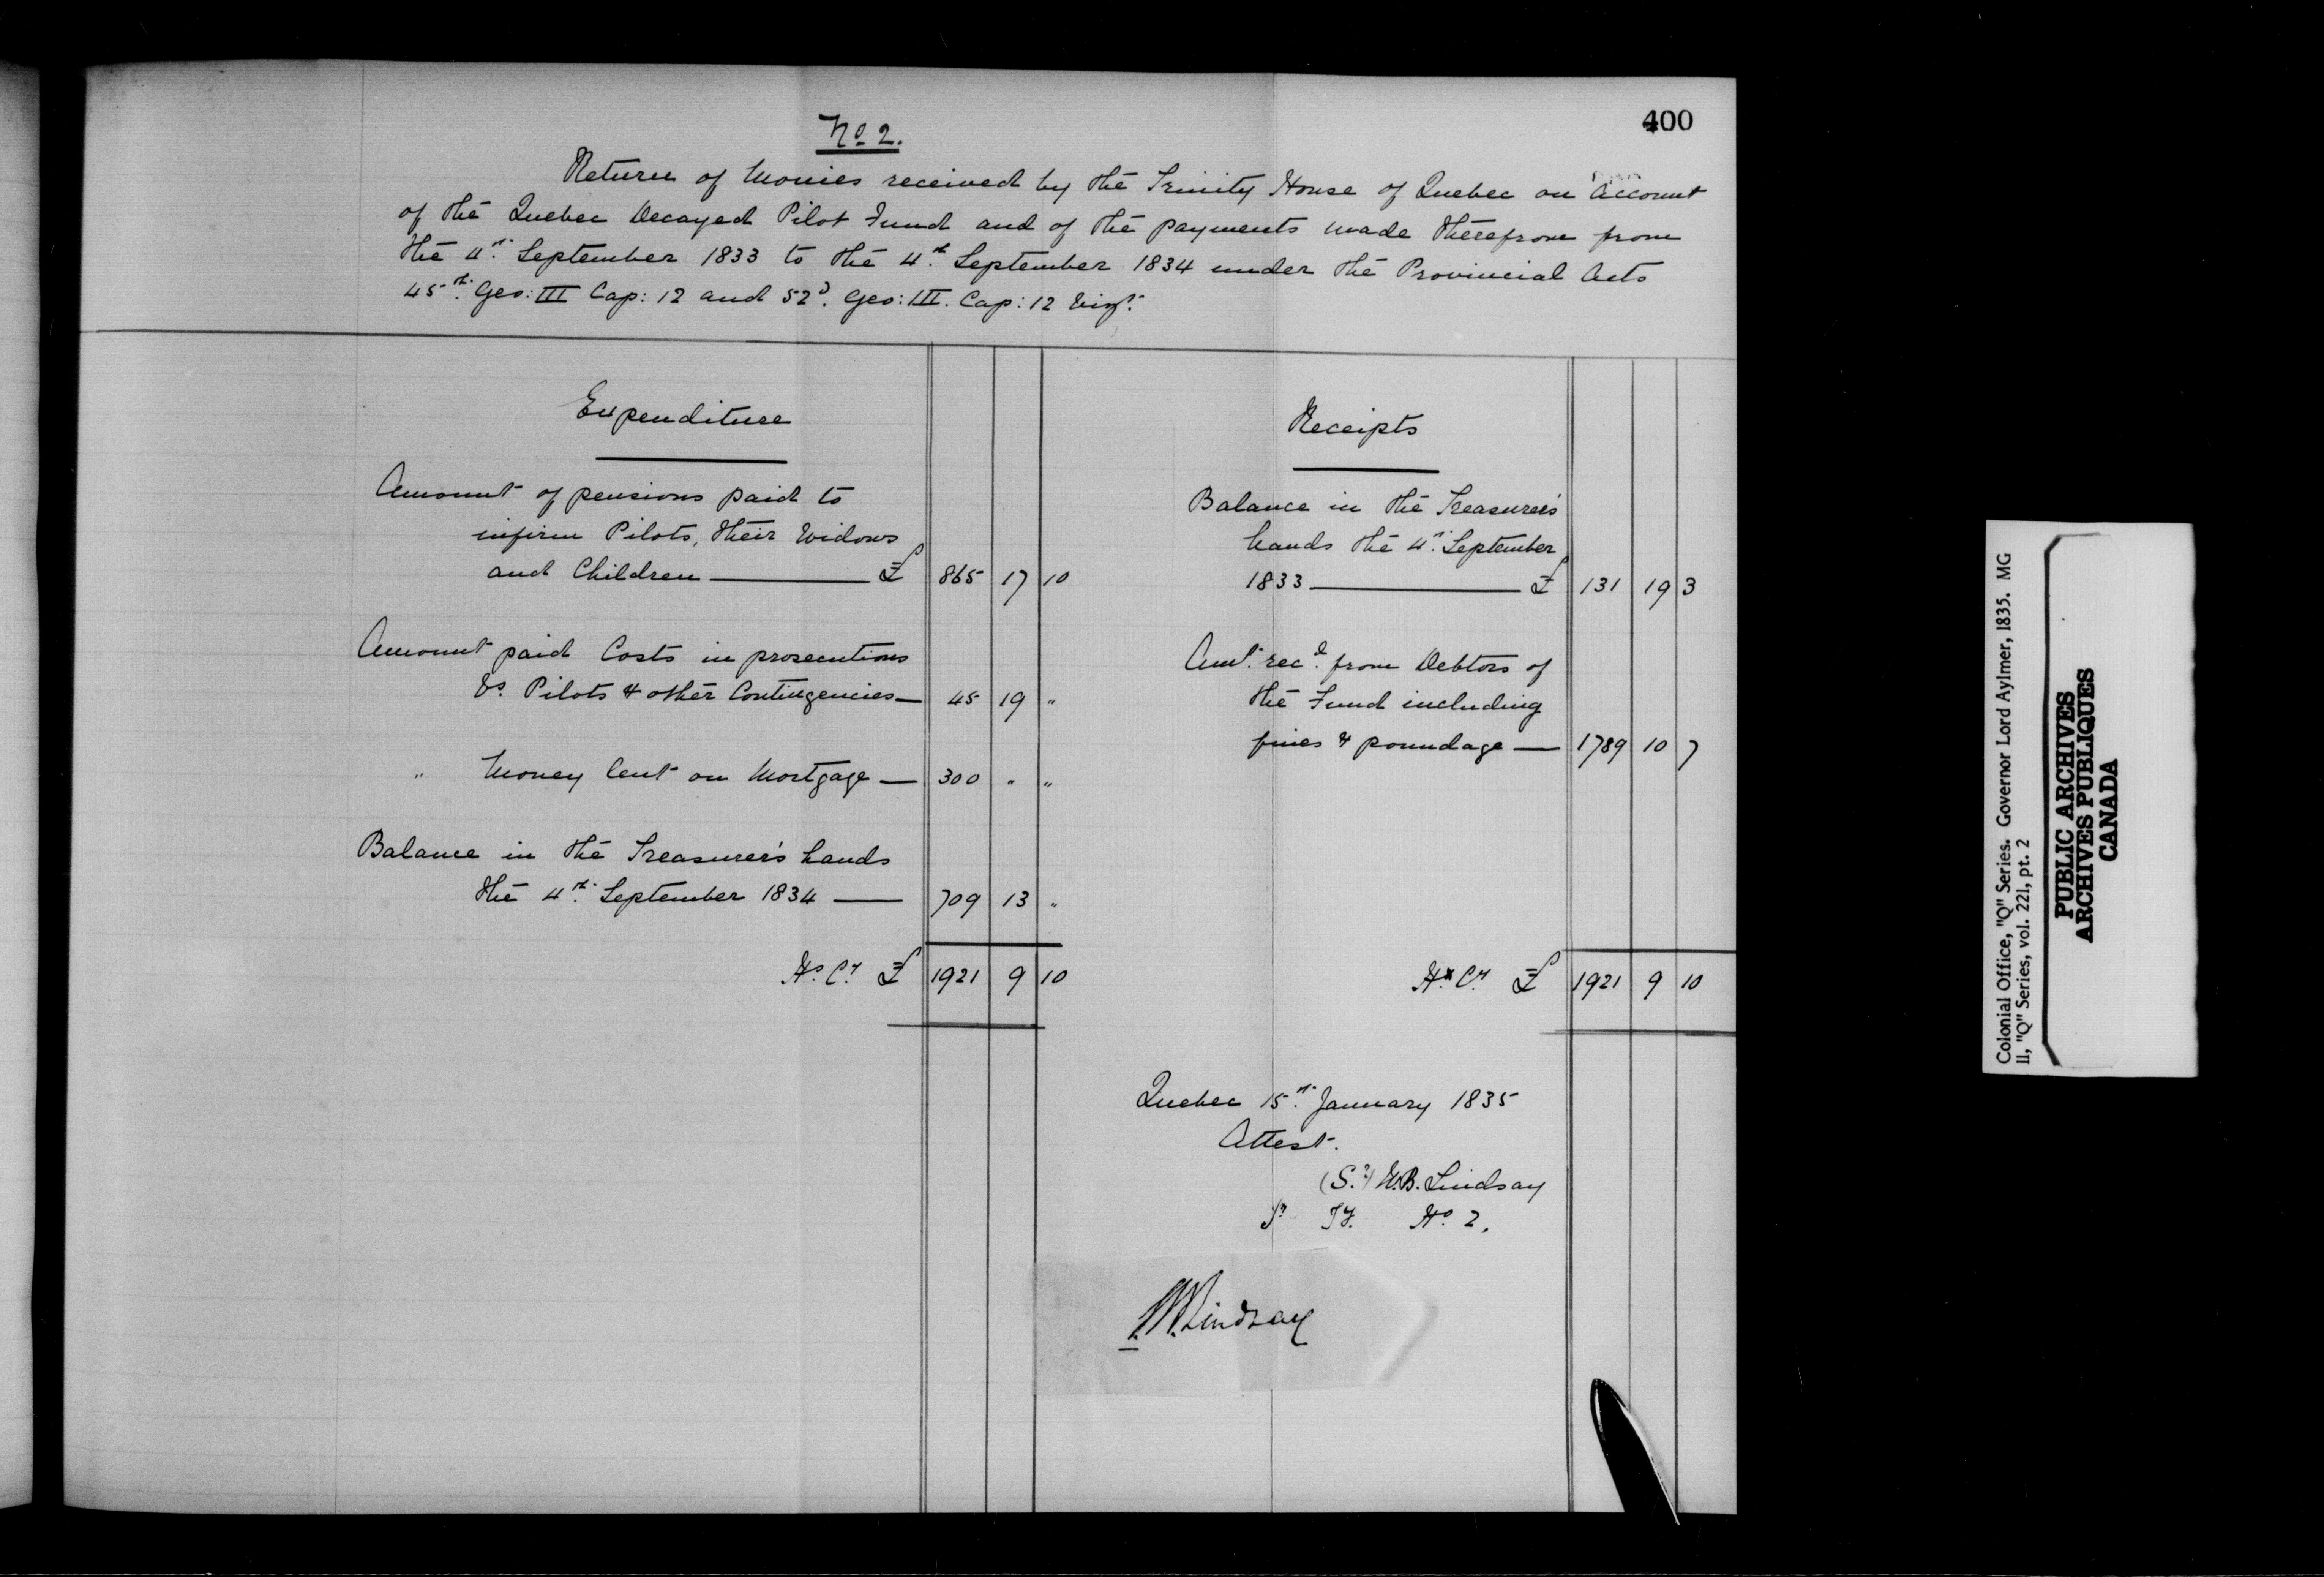 400
No 2.
Return of Monies received by the Trinity House of Quebec on Account
of the Quebec Decayed Pilot Fund and of the payments made therefrom from
the 4th September 1833 to the 4th September 1834 under the Provincial Acts
45th Geo: III Cap: 12 and 52d Geo: III. Cap: 12 Vizt
Expenditure
Amount of pensions paid to
infirm Pilots, their Widows
and Children — £ 865 17 10
Amount paid Costs in prosecutions
Vs Pilots & other Contingencies — 45 19 "
" Money lent on Mortgage — 300 " "
Balance in the Treasurer's hands
the 4th September 1834 — 709 13 "
Hx Cy £ 1921 9 10
Receipts
Balance in the Treasurer's
hands the 4th September
1833 — £ 131 19 3
Amt recd from Debtors of
the Fund including
fines & poundage — 1789 10 7
Hx Cy £ 1921 9 10
Quebec 15th January 1835
Attest.
(Sd) W.B. Lindsay
Lindsay
Colonial Office, "Q" Series. Governor Lord Aylmer, 1835. MG
11, "Q" Series, vol. 221, pt. 2
PUBLIC ARCHIVES
ARCHIVES PUBLIQUES
CANADA